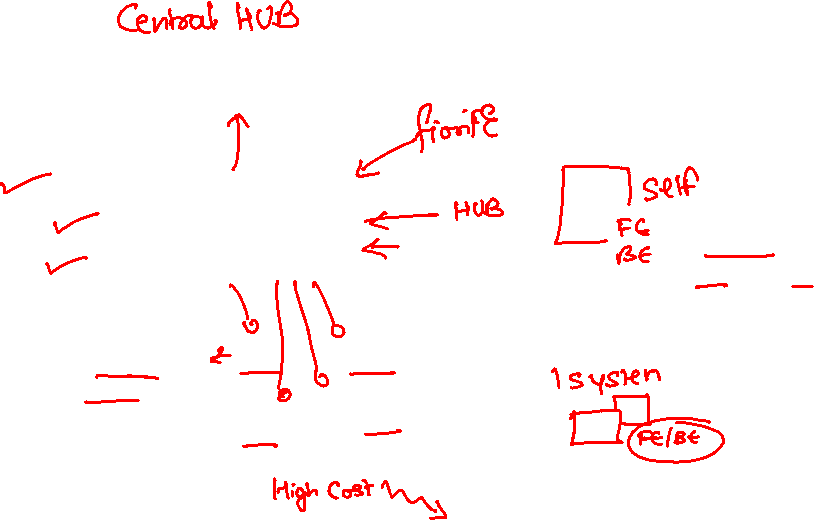 Central HUB
fioriFE
HUB
Self
FE
BE
1 System
FE/BE
High Cost